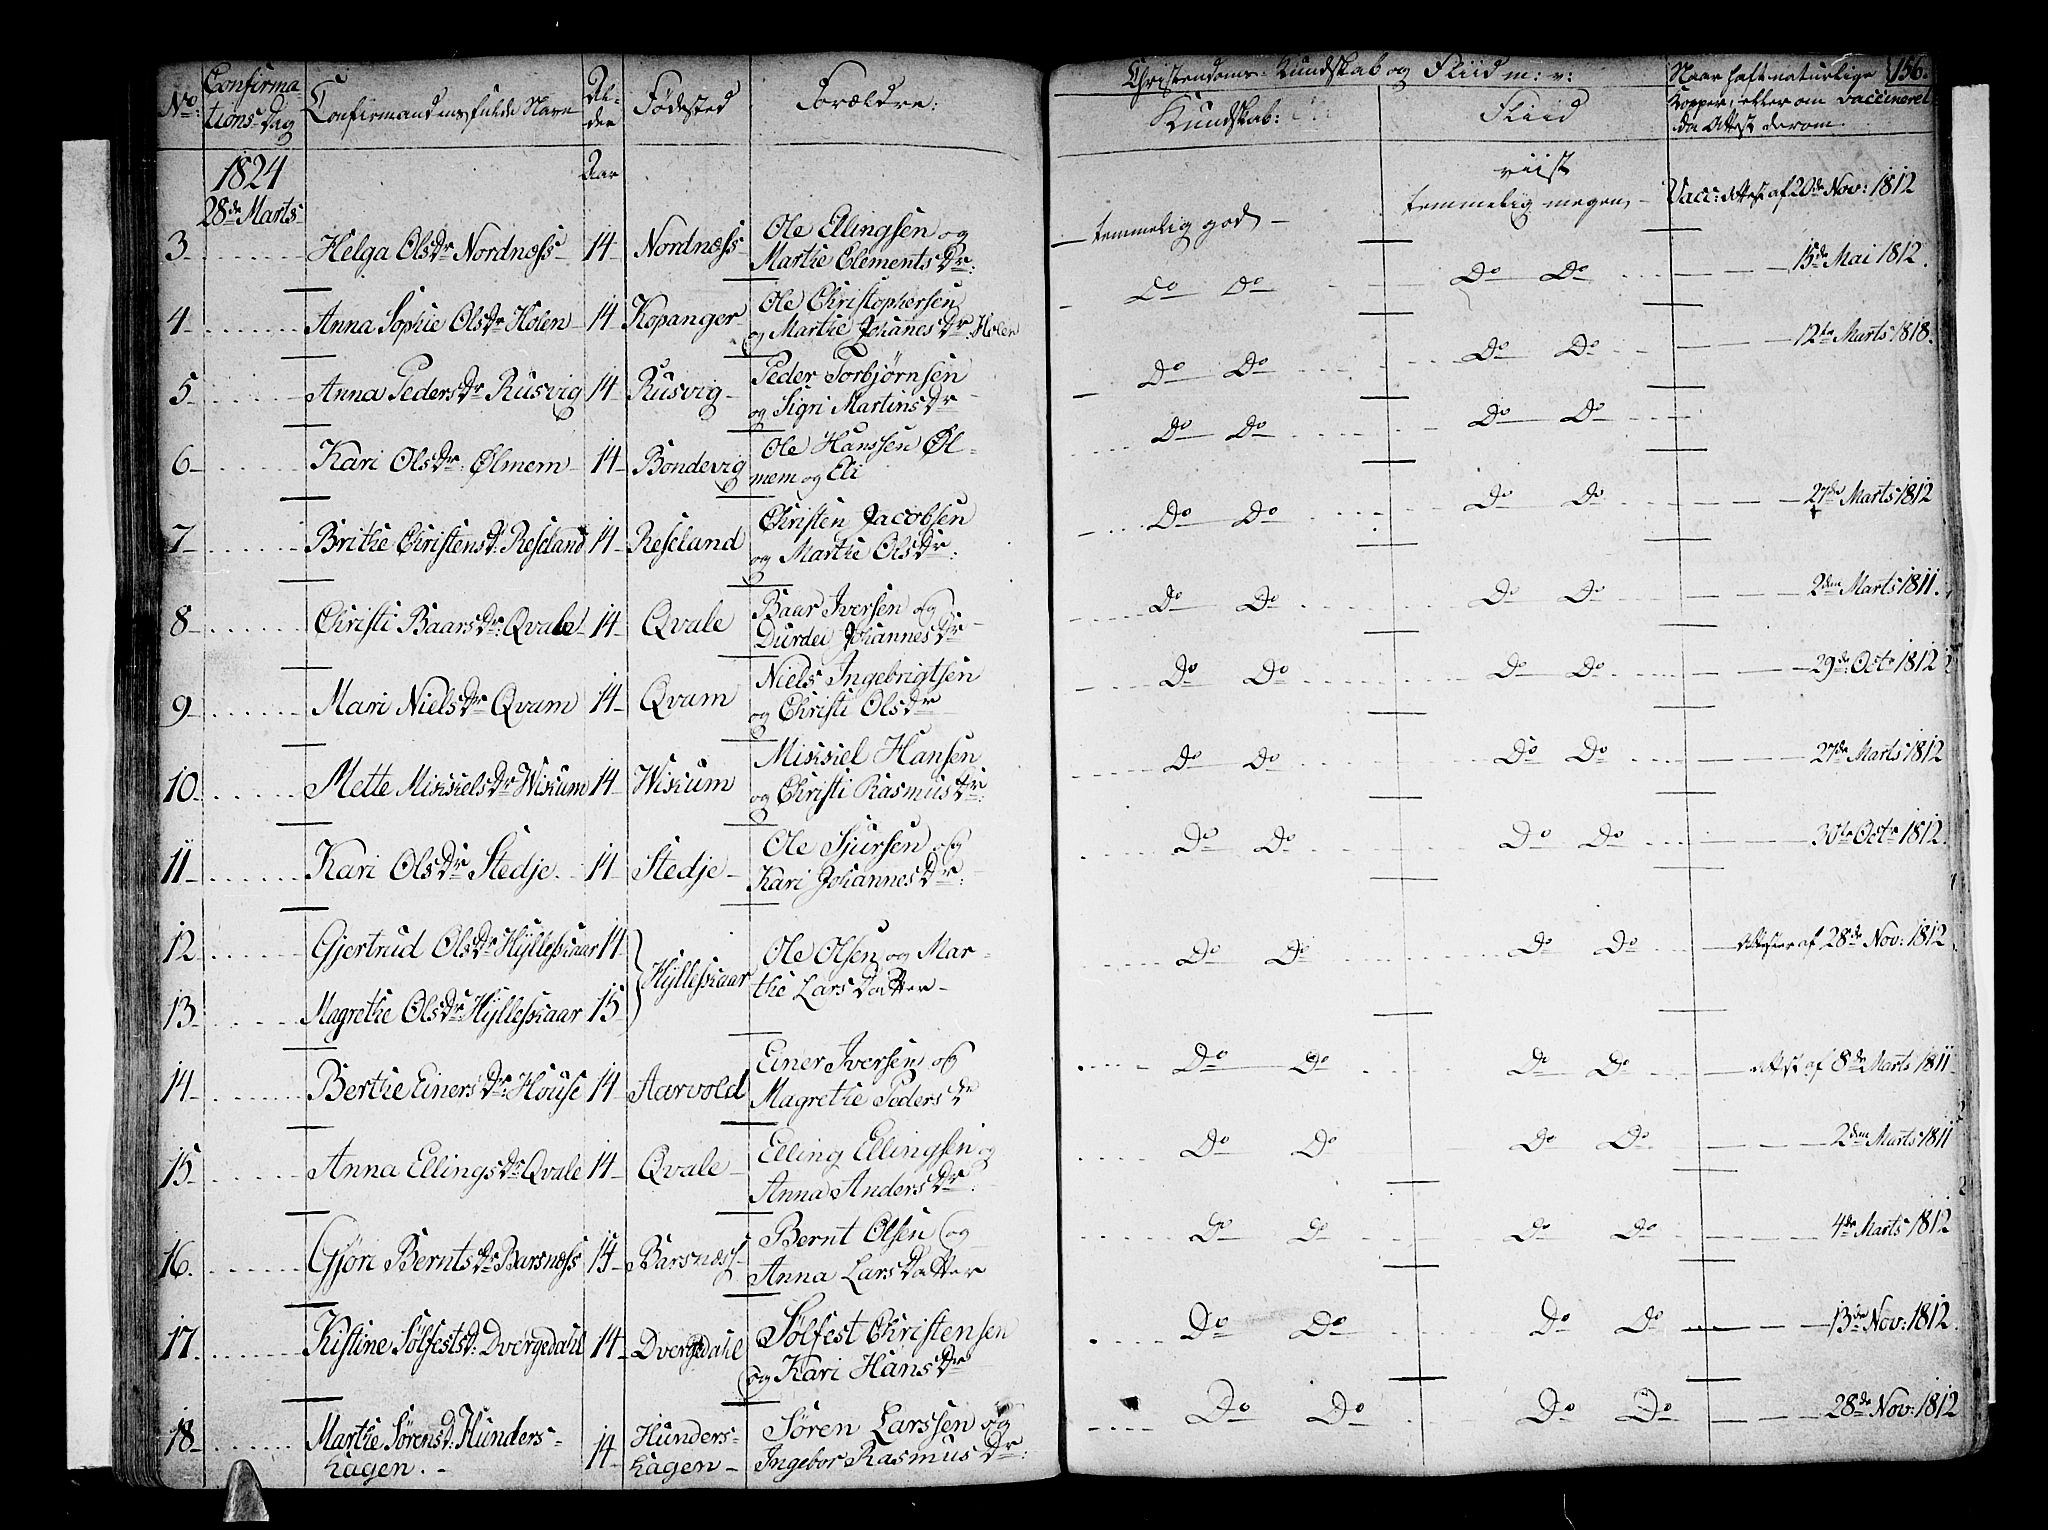 156.
No: Confirma Confirmandens fulde Navn Al- Fødested Forældre: Christendoms-Kundskab og Fliid m: v: Naar haft naturlige
tions-Dag der Kundskab: Fliid Kopper, eller om vaccineret
da Attest derom.
1824 Aar viist
28de Marts temmelig god – temmelig megen – Vacc: Attest af 20de Nov: 1812
3 Helga OlsDr Nordnæss 14 Nordnæss Ole Ellingsen og
Marthe ClementsDr:
4 Anna Sophie OlsDr Holen 14 Kopanger Ole Christophersen Do Do Do Do 15de Mai 1812.
og Marthe JohanesDr: Holen
5 Anna PedersDr Rusvig 14 Rusvig Peder Torbjørnsen Do Do Do Do 12te Marts 1818.
og Sigri MartinsDr
6 Kari OlsDr: Ølmem 14 Bondevig Ole Hanssen Øl- Do Do Do Do
mem og Eli
7 Brithe ChristensD: Reseland 14 Reseland Christen Jacobsen Do Do Do Do 27de Marts 1812
og Marthe OlsDr:
8 Christi BaarsDr: Qvale 14 Qvale Baar Iversen og Do Do Do Do 2den Marts 1811.
Durdei JohannesDr
9 Mari NielsDr Qvam 14 Qvam Niels Ingebrigtsen Do Do Do Do 29de Octr 1812
og Christi OlsDr
10 Mette MikkelsDr Wikum 14 Wikum Mikkel Hansen Do Do Do Do 27de Marts 1812
og Christi RasmusDr:
11 Kari OlsDr Stedje 14 Stedje Ole Sjursen og Do Do Do Do 30te Octr 1812.
Kari JohannesDr:
12 Gjertrud OlsDr Hyllesskaar 14 Hyllesskaar Ole Olsen og Mar- Do Do Do Do Attester af 28de Nov: 1812.
13 Magrethe OlsDr: Hyllesskaar 15 the LarsDatter
14 Berthe EinersDr: House 14 Aarvold Einer Iversen og Do Do Do Do Attest af 8de Marts 1811
Magrethe PedersDr
15 Anna EllingsDr Qvale 14 Qvale Elling Ellingsen og Do Do Do Do 2den Marts 1811
Anna AndersDr
16. Gjøri BerntsDr Barsnæss 14 Barsnæss Bernt Olsen og Do Do Do Do 4de Marts 1812
Anna LarsDatter
17 Kistine SølfestsD: Dvergedahl 14 Dvergedahl Sølfest Christensen Do Do Do Do 13de Nov: 1812.
og Kari HansDr
18 Marthe SørensD: Hunders- 14 Hunders- Søren Larssen og Do Do Do Do 28de Nov: 1812
hagen. hagen Ingebor RasmusDr: